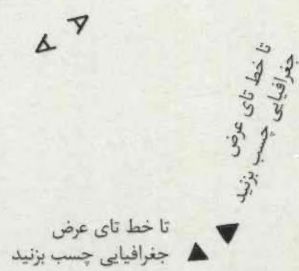 A A
تا خط تای عرض
جغرافیایی چسب بزنید
تا خط تای عرض
جغرافیایی چسب بزنید